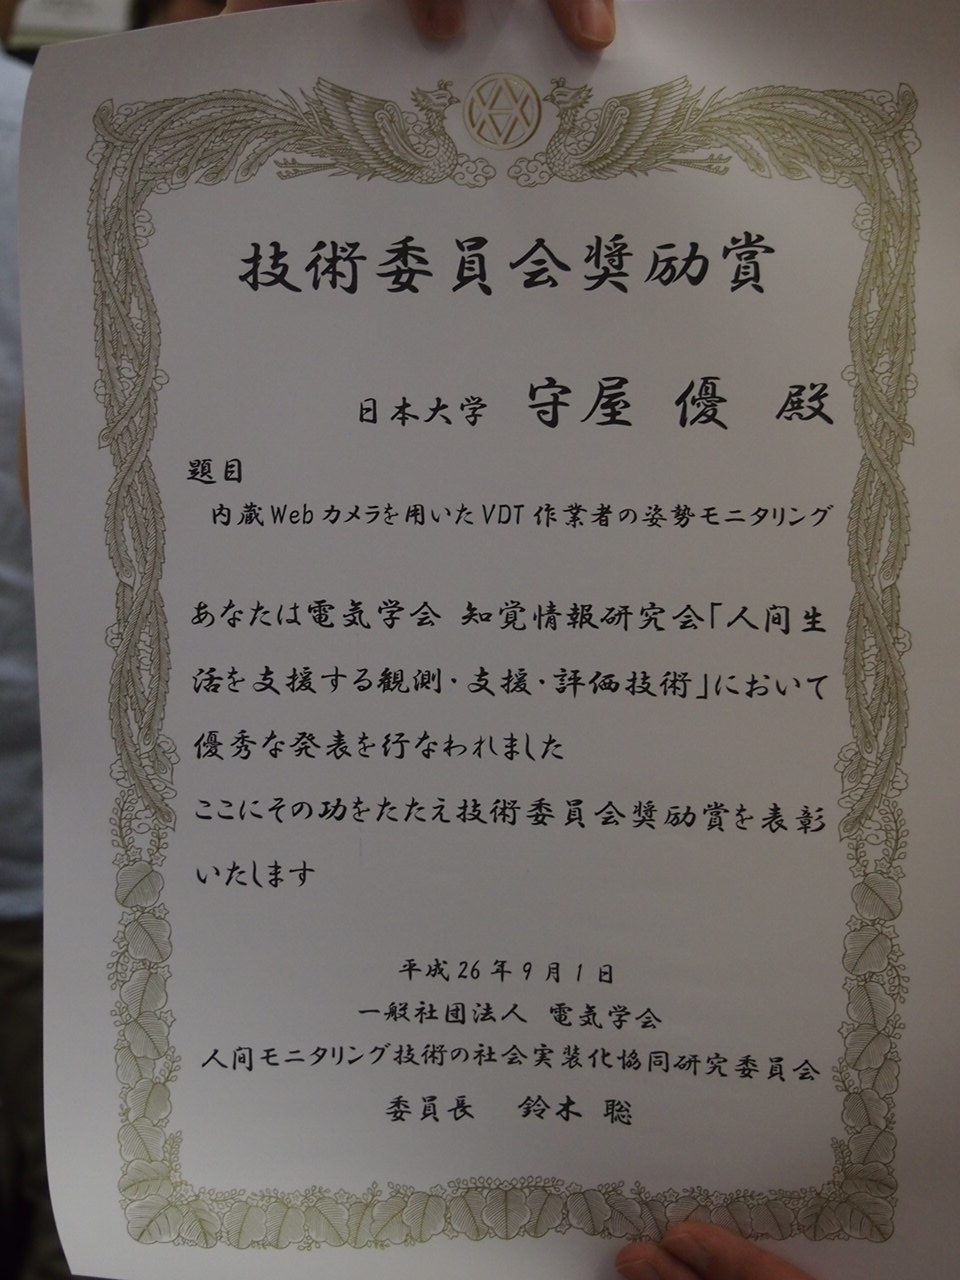 技術委員会奨励賞
日本大学 守屋 優 殿
題目
内蔵Webカメラを用いたVDT作業者の姿勢モニタリング
あなたは電気学会 知覚情報研究会「人間生
活を支援する観測・支援・評価技術」において
優秀な発表を行なわれました
ここにその功をたたえ技術委員会奨励賞を表彰
いたします
平成26年9月1日
一般社団法人 電気学会
人間モニタリング技術の社会実装化協同研究委員会
委員長 鈴木 聡